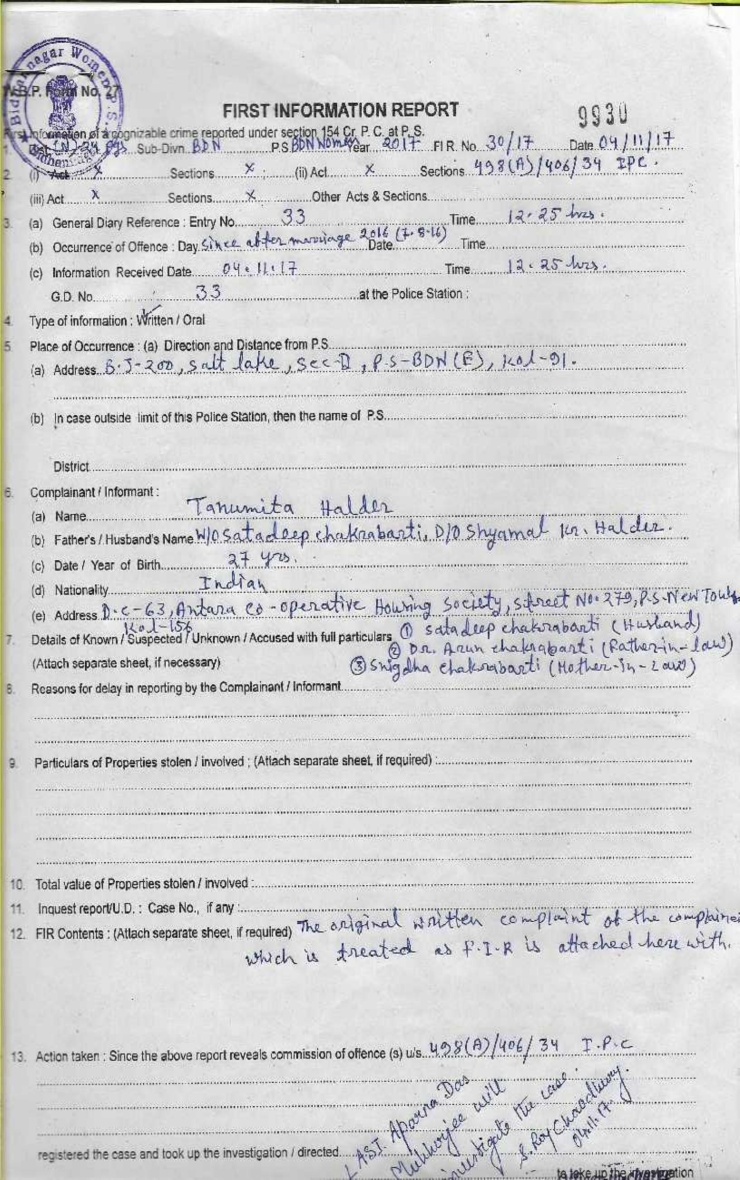 Bidhannagar Women P.S.
W.B.P. Form No. 27
FIRST INFORMATION REPORT
9930
First Information of a cognizable crime reported under section 154 Cr. P. C. at P. S.
1. Dist. (N) 24 Pgs Sub-Divn. BDN P.S. BDN Women Year 2017 F I R. No. 30/17 Date 04/11/17
2. (i) Act X Sections X (ii) Act X Sections 498(A)/406/34 IPC.
(iii) Act X Sections X Other Acts & Sections
3. (a) General Diary Reference : Entry No. 33 Time 12.25 hrs.
(b) Occurrence of Offence : Day Since after marriage 2016 (7-8-16) Date Time
(c) Information Received Date 04.11.17 Time 12.25 hrs.
G.D. No. 33 at the Police Station :
4. Type of information : Written / Oral
5. Place of Occurrence : (a) Direction and Distance from P.S.
(a) Address B.J-200, Salt lake, Sec-II, P.S-BDN(E), Kol-91.
(b) In case outside limit of this Police Station, then the name of P.S.
District
6. Complainant / Informant :
(a) Name Tanumita Halder
(b) Father's / Husband's Name W/O Satadeep chakrabarti, D/O Shyamal Kr. Halder.
(c) Date / Year of Birth 27 yrs.
(d) Nationality Indian
(e) Address D.C-63, Antara Co-operative Housing Society, Street No. 279, P.S-New Town,
Kol-156
7. Details of Known / Suspected / Unknown / Accused with full particulars ① Satadeep chakrabarti (Husband)
② Dr. Arun chakrabarti (Father-in-law)
(Attach separate sheet, if necessary) ③ Snigdha chakrabarti (Mother-in-Law)
8. Reasons for delay in reporting by the Complainant / Informant
9. Particulars of Properties stolen / involved ; (Attach separate sheet, if required) :
10. Total value of Properties stolen / involved :
11. Inquest report/U.D. : Case No., if any :
12. FIR Contents : (Attach separate sheet, if required) The original written complaint of the complainan
which is treated as F.I.R is attached here with.
13. Action taken : Since the above report reveals commission of offence (s) u/s. 498(A)/406/34 I.P.C
registered the case and took up the investigation / directed
LASI. Aparna Das
Mukherjee will
investigate the case.
S. Roy Chowdhury.
04.11.17
to take up the investigation